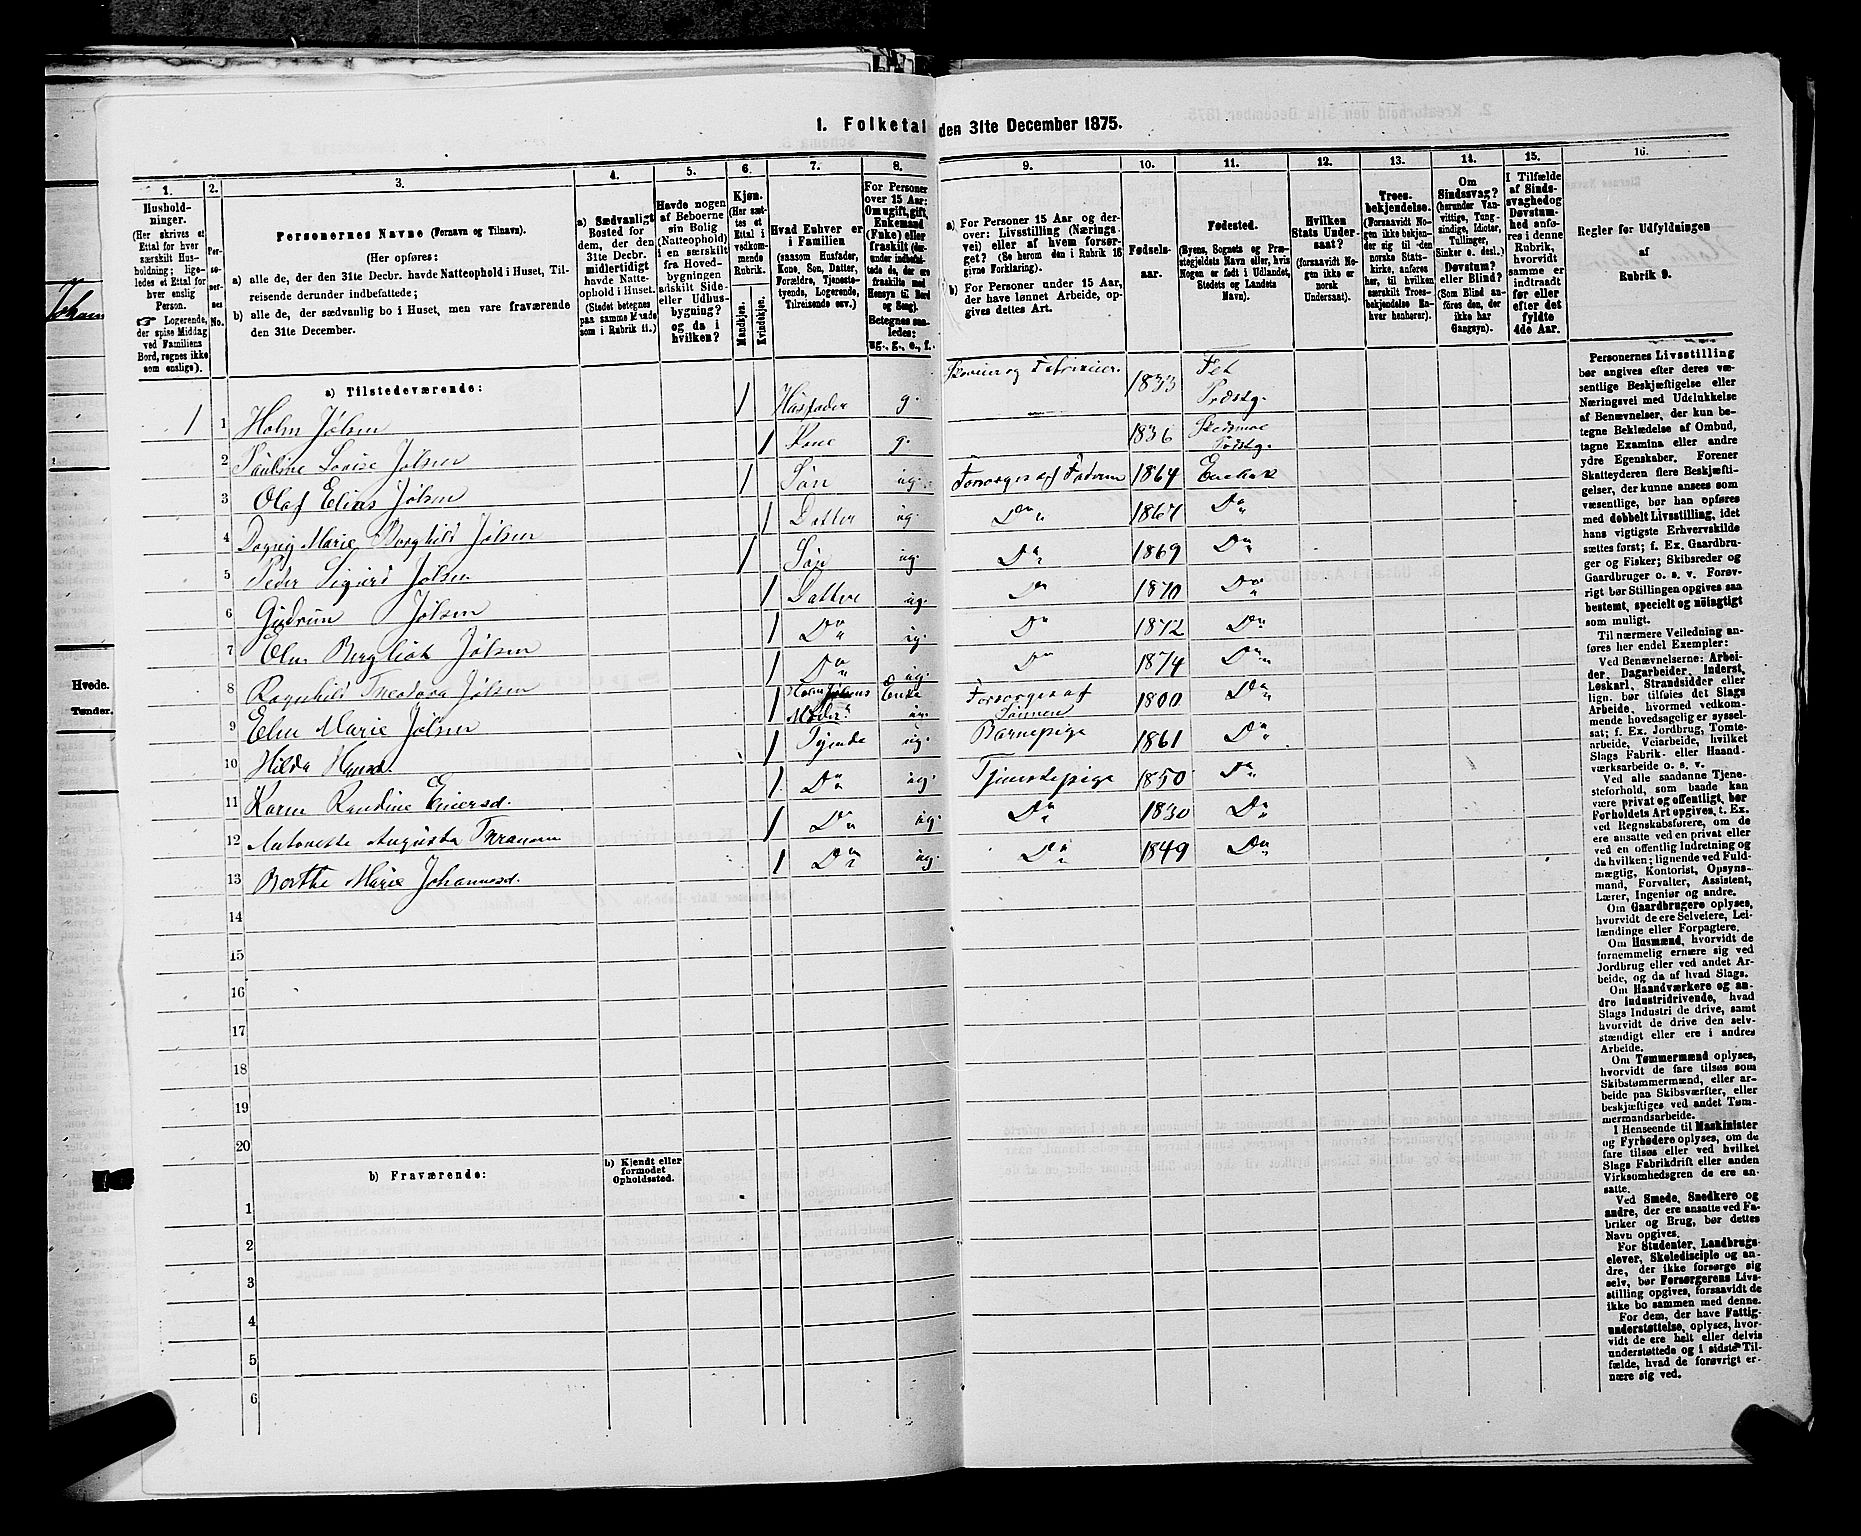 1. Folketal den 31te December 1875.
1. 2. 3. 4. 5. 6. 7. 8. 9. 10. 11. 12. 13. 14. 15. 16.
Husholdninger.
(Her skrives et Ettal for hver særskilt Husholdning; ligeledes et Ettal for hver enslig Person.
☞ Logerende, der spise Middag ved Familiens Bord, regnes ikke som enslige).
Personernes No.
Personernes Navne (Fornavn og Tilnavn).
(Her opføres:
a) alle de, der den 31te Decbr. havde Natteophold i Huset, Tilreisende derunder indbefattede;
b) alle de, der sædvanlig bo i Huset, men vare fraværende den 31te December.
a) Sædvanligt Bosted for dem, der den 31te Decbr. midlertidigt havde Natteophold i Huset. (Stedet betegnes paa samme Maade som i Rubrik 11.)
Havde nogen af Beboerne sin Bolig (Natteophold) i en særskilt fra Hovedbygningen adskilt Side- eller Udhusbygning? og da i hvilken?
Kjøn. (Her sættes et Ettal i vedkommende Rubrik.
Mandkjøn. Kvindekjøn.
Hvad Enhver er i Familien
(saasom Husfader, Kone, Søn, Datter, Forældre, Tjenestetyende, Logerende, Tilreisende osv.)
For Personer over 15 Aar: Om ugift, gift, Enkemand (Enke) eller fraskilt (derunder indbefattede de, der ere fraskilte med Hensyn til Bord og Seng). Betegnes saaledes: ug., g., e., f.
a) For Personer 15 Aar og derover: Livsstilling (Næringsvei) eller af hvem forsørget? (Se herom den i Rubrik 16 givne Forklaring).
b) For Personer under 15 Aar, der have lønnet Arbeide, opgives dettes Art.
Fødselsaar.
Fødested.
(Byens, Sognets og Præstegjeldets Navn eller, hvis Nogen er født i Udlandet, Stedets og Landets Navn).
Hvilken Stats Undersaat?
(forsaavidt Nogen ikke er norsk Undersaat).
Troesbekjendelse.
(Forsaavidt Nogen ikke bekjender sig til den norske Statskirke, anføres her, til hvilken særskilt Troesbekjendelse Enhver henhører).
Om Sindssvag? (herunder Vanvittige, Tungsindige, Idioter, Tullinger, Sinker o. desl.). Døvstum? eller Blind? (Som Blind anføres den, der ikke har Gangsyn).
I Tilfælde af Sindssvaghed og Døvstumhed anføres i denne Rubrik, hvorvidt samme er indtraadt før eller efter det fyldte 4de Aar.
Regler for Udfyldningen af Rubrik 9.
a) Tilstedeværende:
1 1 Holm Jølsen 1 Husfader g. 1833 Fet Præstg.
2 Pauline Lovise Jølsen 1 Kone g. 1836 Skedsmoe Præstg.
3 Olaf Elias Jølsen 1 Søn ug. Forsørges af Faderen 1864 Enebak
4 Dagny Marie Borghild Jølsen 1 Datter ug. Do 1867 Do
5 Peder Sigurd Jølsen 1 Søn ug. Do 1869 Do
6 Gudrun Jølsen 1 Datter ug. Do 1870 Do
7 Elen Bergliot Jølsen 1 Do ug. Do 1872 Do
8 Ragnhild Theodora Jølsen 1 Do ug. Do 1874 Do
9 Elen Marie Jølsen 1 Holm Jølsens Moder Enke Forsørges af Sønnen 1800 Do
10 Hilda Hansd. 1 Tjende ug. Barnepige 1861 Do
11 Karen Randine Einersd. 1 Do ug. Tjenestepige 1850 Do
12 Antonette Augusta 1 Do ug. Do 1830 Do
13 Berthe Marie Johannesd. 1 Do ug. Do 1849 Do
14
15
16
17
18
19
20
b) Fraværende:
b) Kjendt eller formodet Opholdssted.
1
2
3
4
5
6
Personernes Livsstilling
bør angives efter deres væ-
sentlige Beskjæftigelse eller
Næringsvei med Udelukkelse
af Benævnelser, der kun be-
tegne Beklædelse af Ombud,
tagne Examina eller andre
ydre Egenskaber. Forener
Skatteyderen flere Beskjæfti-
gelser, der kunne ansees som
væsentlige, bør han opføres
med dobbelt Livsstilling, idet
hans vigtigste Erhvervskilde
sættes først; f. Ex. Gaardbru-
ger og Fisker; Skibsreder og
Gaardbruger o. s. v. Forøv-
rigt bør Stillingen opgives saa
bestemt, specielt og nøiagtigt
som muligt.
Til nærmere Veiledning an-
føres her endel Exempler:
Ved Benævnelserne: Arbei-
der, Dagarbeider, Inderst,
Løskarl, Strandsidder eller
lign. bør tilføies det Slags
Arbeide, hvormed vedkom-
mende hovedsagelig er syssel-
sat; f. Ex. Jordbrug, Tomte-
arbeide, Veiarbeide, hvilket
Slags Fabrik- eller Haand-
værksarbeide o. s. v.
Ved alle saadanne Tjene-
steforhold, som baade kan
være privat og offentligt, bør
Forholdets Art opgives, t. Ex.
ved Regnskabsførere, om de
ere ansatte ved en privat eller
ved en offentlig Indretning og
da hvilken; lignende ved Fuld-
mægtig, Kontorist, Opsyns-
mand, Forvalter, Assistent,
Lærer, Ingeniør og andre.
Om Gaardbrugere oplyses,
hvorvidt de ere Selveiere, Lei-
lændinge eller Forpagtere.
Om Husmænd, hvorvidt de
fornemmelig ernære sig ved
Jordbrug eller ved andet Ar-
beide, og da af hvad Slags.
Om Haandværkere og an-
dre Industridrivende, hvad
Slags Industri de drive, samt
hvorvidt de drive den selv-
stændigt eller ere i andres
Arbeide.
Om Tømmermænd oplyses,
hvorvidt de fare tilsøs som
Skibstømmermænd, eller ar-
beide paa Skibsværfter, eller
beskjæftiges ved andet Tøm-
mermandsarbeide.
I Henseende til Maskinister
og Fyrbødere oplyses, om de
fare tilsøs eller ved hvilket
Slags Fabrikdrift eller anden
Virksomhedsgren de ere an-
satte.
Ved Smede, Snedkere og
andre, der ere ansatte ved Fa-
briker og Brug, bør dettes
Navn opgives.
For Studenter, Landbrugs-
elever, Skoledisciple og an-
dre, der ikke forsørge sig
selv, bør Forsørgerens Livs-
stilling opgives, forsaavidt de
ikke bo sammen med denne.
For dem, der have Fattig-
understøttelse, oplyses, hvor-
vidt de ere helt eller delvis
understøttede og i sidste Til-
fælde, hvad de forøvrigt er-
nære sig ved.
Hvede.
Tønder.